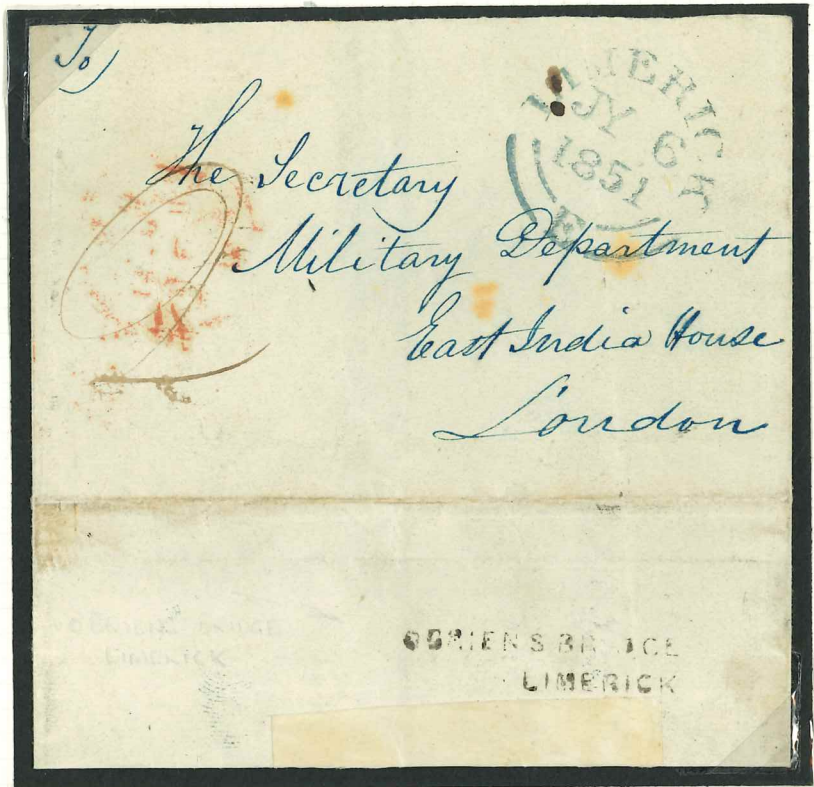 To
LIMERICK
JY 6
1851
E
The Secretary
Military Department
East India House
London
O BRIENS BRIDGE
LIMERICK
OBRIENSBRIDGE
LIMERICK